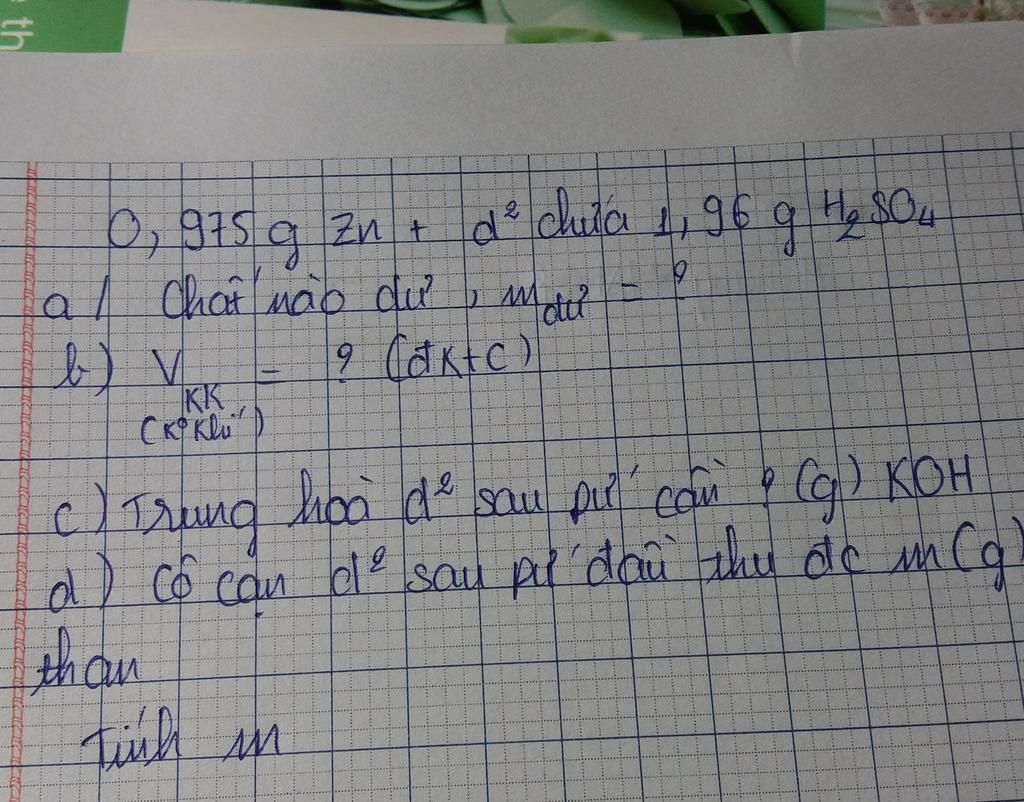 th
0,975 g Zn + d² chứa 1,96 g H₂SO₄
a) Chất nào dư, m dư = ?
b) V KK = ? (đktc)
(K° Khí)
c) Trung hoà d² sau pứ cần ? (g) KOH
d) Cô cạn d² sau pứ đầu thu đc m (g)
than
Tính m